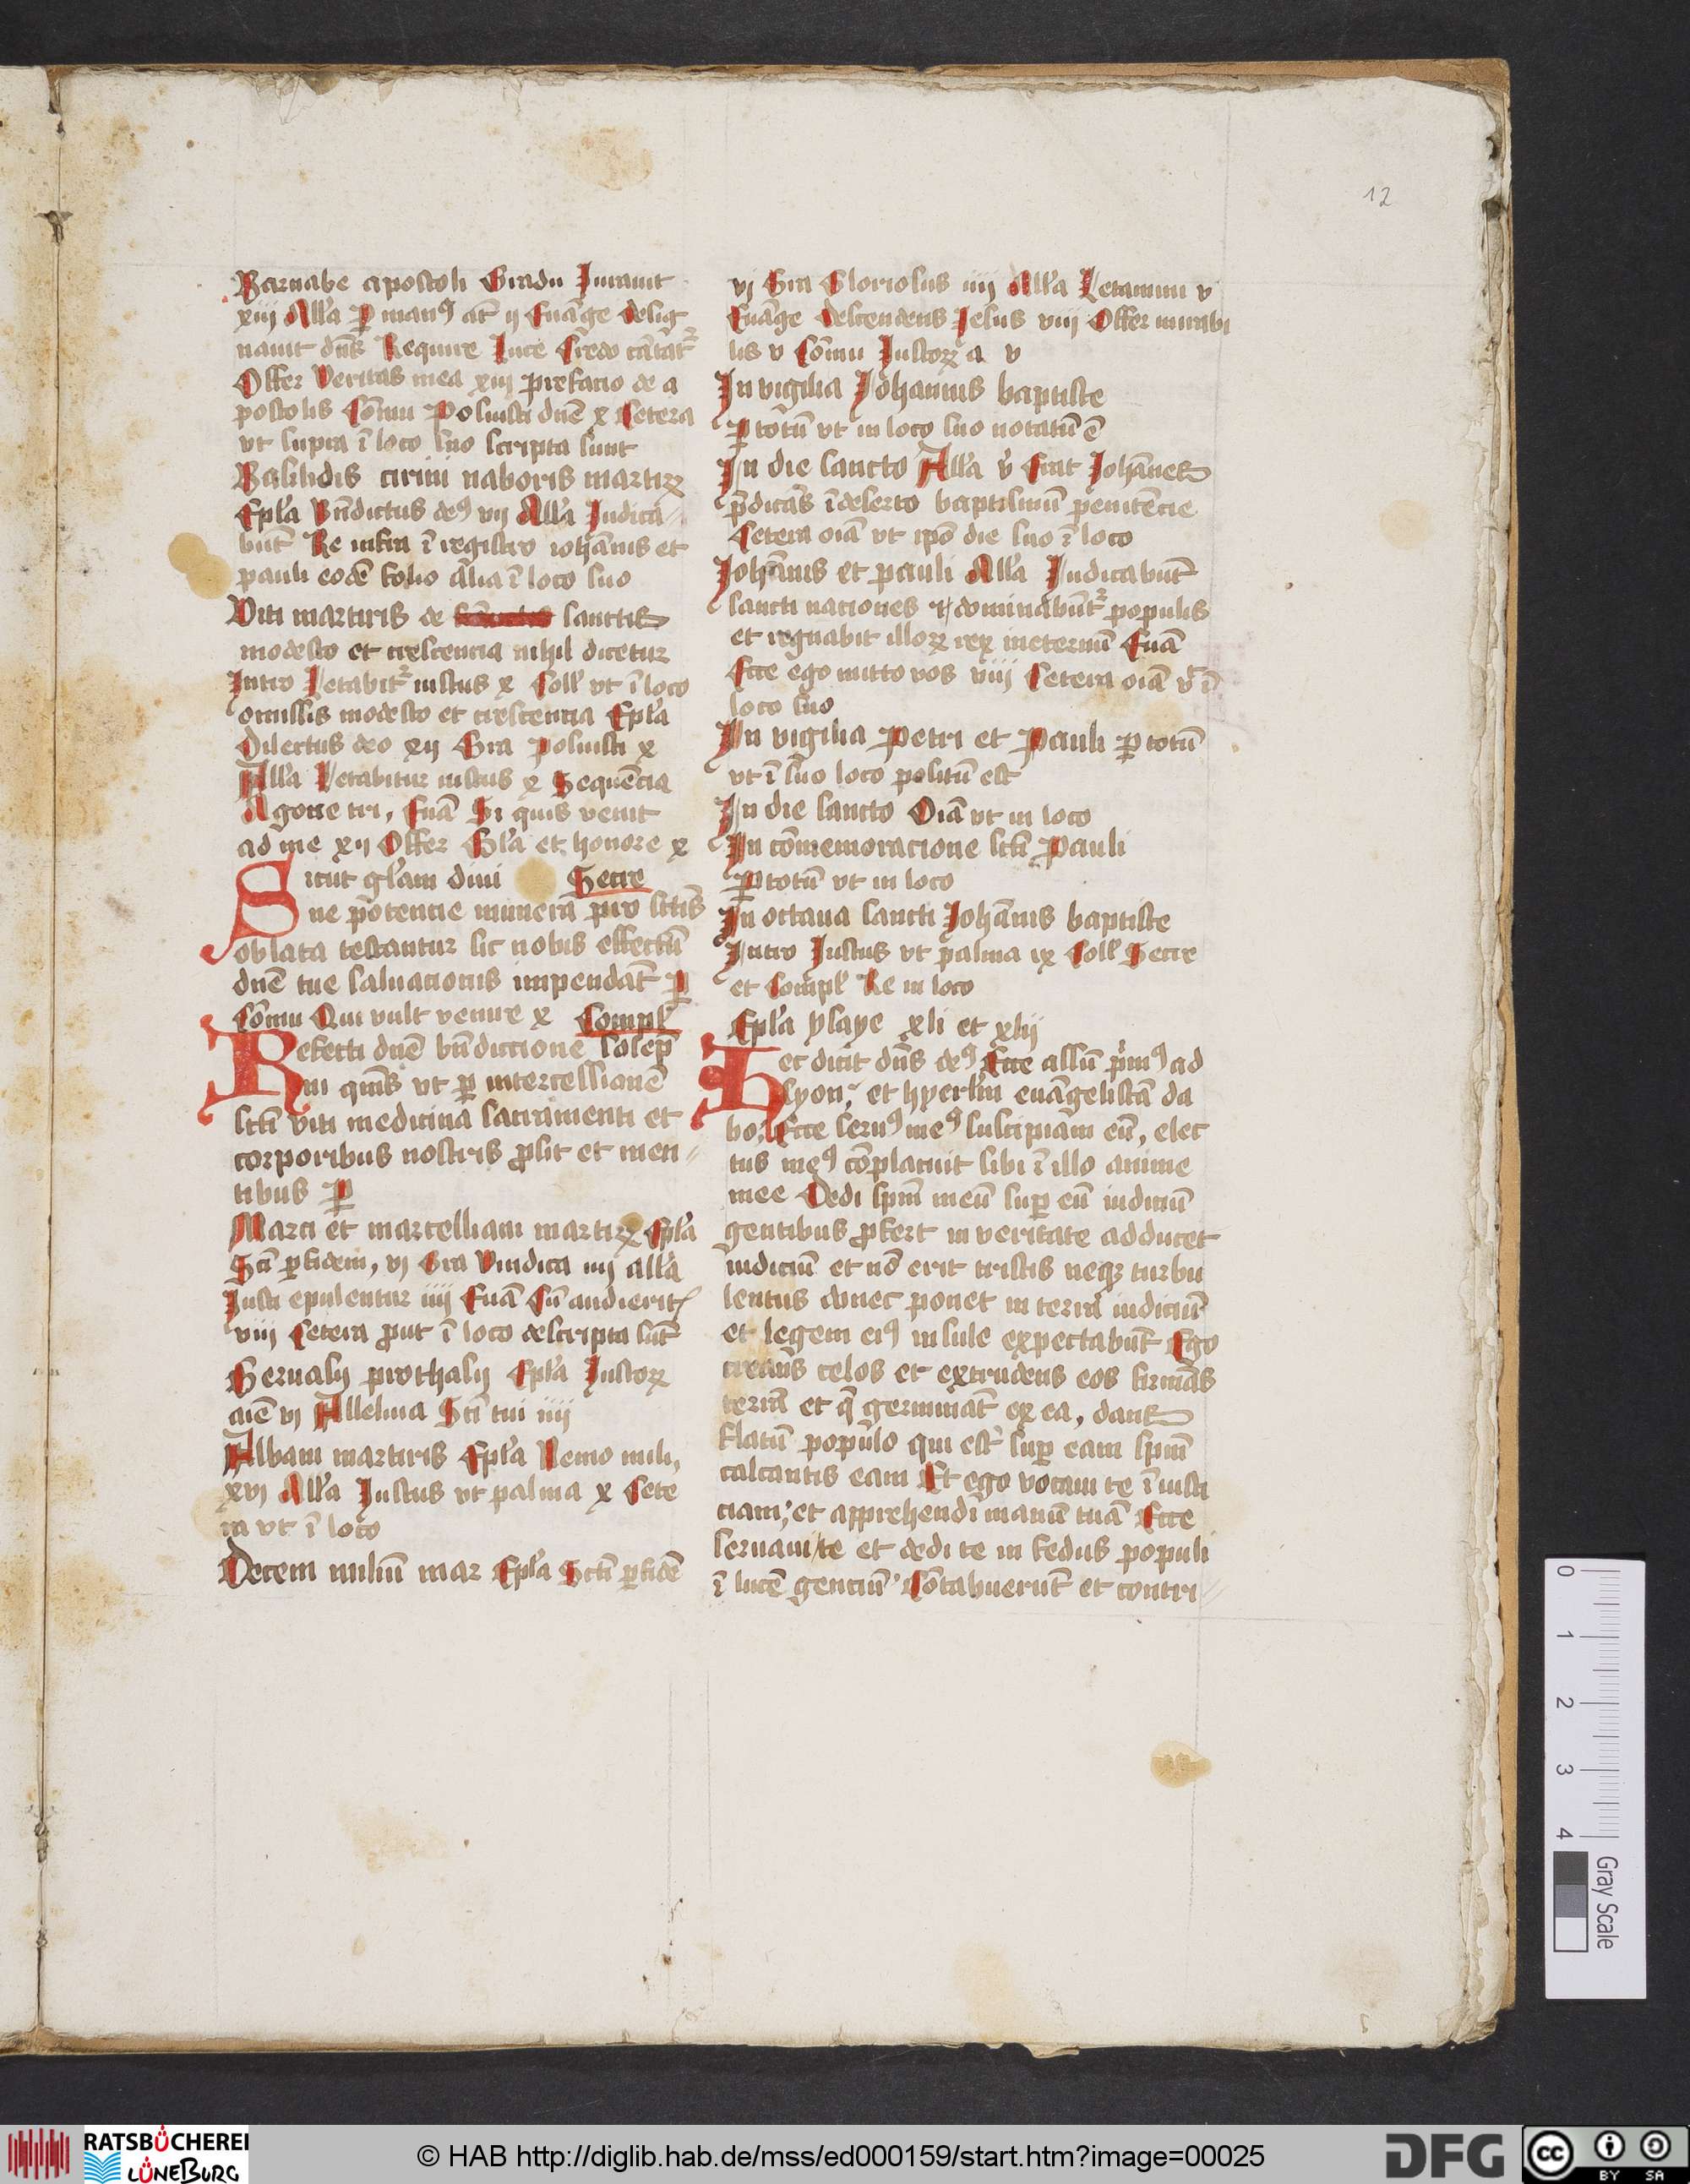 12
Barnabe apostoli Gradu Iurauit
xiii All'a P man⁹ at̄ ii Euāge desig
nauit dn̄s Require Luce Credo cātat᷑
Offer Veritas mea xiii prefacio de a
postolis Cōmu Posuisti dnē x Cetera
vt supra ī loco suo scripta sunt
Basilidis cirini naboris martirꝝ
Epl'a Bn̄dictus de⁹ vii All'a Iudica
būt Re infra ī registro iohānis et
pauli eodē folio al'ia ī loco suo
Viti martiris de sanctis
modesto et crescencia nihil dicetur
Intro Letabit᷑ iustus x Coll' vt ī loco
omissis modesto et crescencia Epl'a
Dilectus deo xii Gra Posuisti x
All'a Letabitur iustus x Sequēcia
Agone tri, Euā Si quis venit
ad me xii Offer Gl'a et honore x
Sicut gl'iam diui Secre
ne potencie munera pro sctis
oblata testantur sic nobis effectū
dnē tue saluacionis impendat̄ P
Cōmu Qui vult venire x Compl'
Refecti dnē bn̄dictione solēp
ni qms̄ vt ꝑ intercessionē
scti viti medicina sacramenti et
corporibus nostris ꝓsit et men
tibus P
Marci et marcelliani martirꝝ Epl'a
Scī ꝑ fidem, vi Gra Vindica iiii all'a
Iusti epulentur iiii Euā Cū audieritis
viii Cetera ꝓut ī loco descripta sūt
Geruasii prothasii Epl'a Iustorꝝ
aīe vi Alleluia Sctī tui iiii
Albani martiris Epl'a Nemo mili,
xvi All'a Iustus vt palma x Cete
ra vt ī loco
Decem miliū mar Epl'a Sctī ꝑ fidē
vi Gra Gloriosus iiii All'a Letamini v
Euāge descendens Iesus viii Offer mirabi
lis v Cōmu Iustorꝝ a v
In vigilia Iohannis baptiste
ꝑ totū vt in loco suo notatū ē
In die sancto All'a v̄ Fuit Iohannes
p̄dicās ī deserto baptismū penitēcie
Cetera oīa vt ipo die suo ī loco
Iohānis et pauli All'a Iudicabūt
sancti naciones et dominabūt᷑ populis
et regnabit illorꝝ rex ineternū Euā
Ecce ego mitto vos viii Cetera oīa vt ī
loco suo
In vigilia Petri et Pauli ꝑ totū
vt ī suo loco positū est
In die sancto Oīa vt in loco
In cōmemoracione scti Pauli
ꝑ totū vt in loco
In octaua sancti Iohānis baptiste
Intro Iustus vt palma ix Coll' Secre
et Compl' Re in loco
Epl'a ysaye xli et xlii
Hec dicit dn̄s de⁹ Ecce assū p̄m⁹ ad
syon, et hyerl'm euāgelistā da
bo, Ecce seru⁹ me⁹ suscipiam eū, elec
tus me⁹ cōplacuit sibi ī illo anime
mee Dedi spm̄ meū suꝑ eū iudiciū
gentibus ꝓfert in veritate adducet
iudiciū et nō erit tristis neqꝫ turbu
lentus donec ponet in terra iudiciū
et legem ei⁹ insule expectabūt Ego
creans celos et extendens eos firmās
terrā et q̄ germinat̄ ex ea, dans
flatū populo qui est suꝑ eam spm̄
calcantis eam Et ego vocaui te ī iusti
ciam, et apprehendi manū tuā Ecce
seruaui te et dedi te in fedus populi
ī lucē genciū Cōtabuerūt et contri
0 1 2 3 4
Gray Scale
RATSBÜCHEREI
LÜNEBURG
© HAB http://diglib.hab.de/mss/ed000159/start.htm?image=00025
DFG
cc BY SA